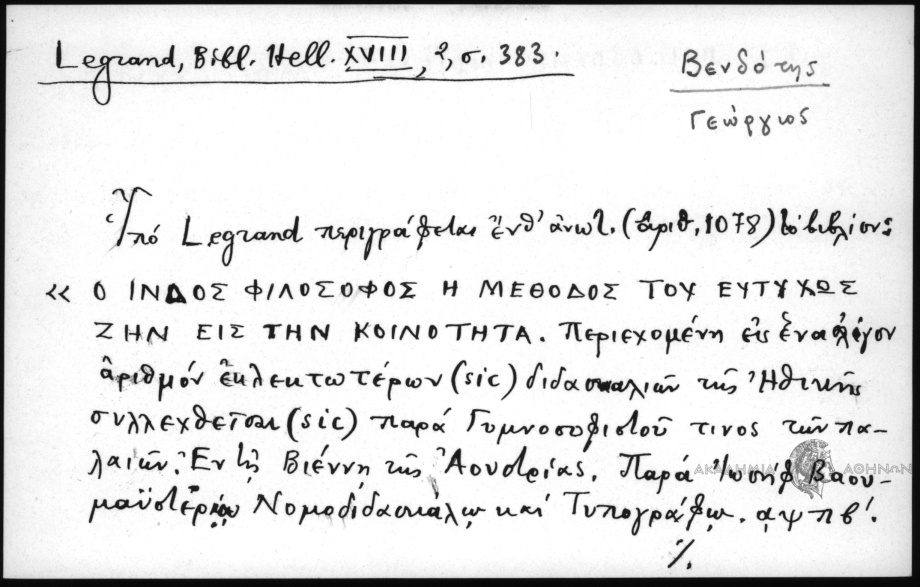 Legrand, Bibl. Hell. XVIII, 2, σ. 383.
Βενδότης
Γεώργιος
Ὑπό Legrand περιγράφεται ἔνθ' ἀνωτ. (ἀριθ. 1078) τό βιβλίον:
« Ο ΙΝΔΟΣ ΦΙΛΟΣΟΦΟΣ Η ΜΕΘΟΔΟΣ ΤΟΥ ΕΥΤΥΧΩΣ
ΖΗΝ ΕΙΣ ΤΗΝ ΚΟΙΝΟΤΗΤΑ. Περιεχομένη εἰς ἕνα λόγον
ἀριθμόν ἐκλεκτωτέρων (sic) διδασκαλιῶν τῆς Ἠθικῆς
συλλεχθεῖσαι (sic) παρά Γυμνοσοφιστοῦ τινος τῶν πα-
λαιῶν. Ἐν τῇ Βιέννῃ τῆς Ἀουστρίας. Παρά Ἰωσήφ Βαου-
μαϊστέρῳ Νομοδιδασκάλῳ καί Τυπογράφῳ. αψπβ'.
./.
ΑΚΑΔΗΜΙΑ ΑΘΗΝΩΝ